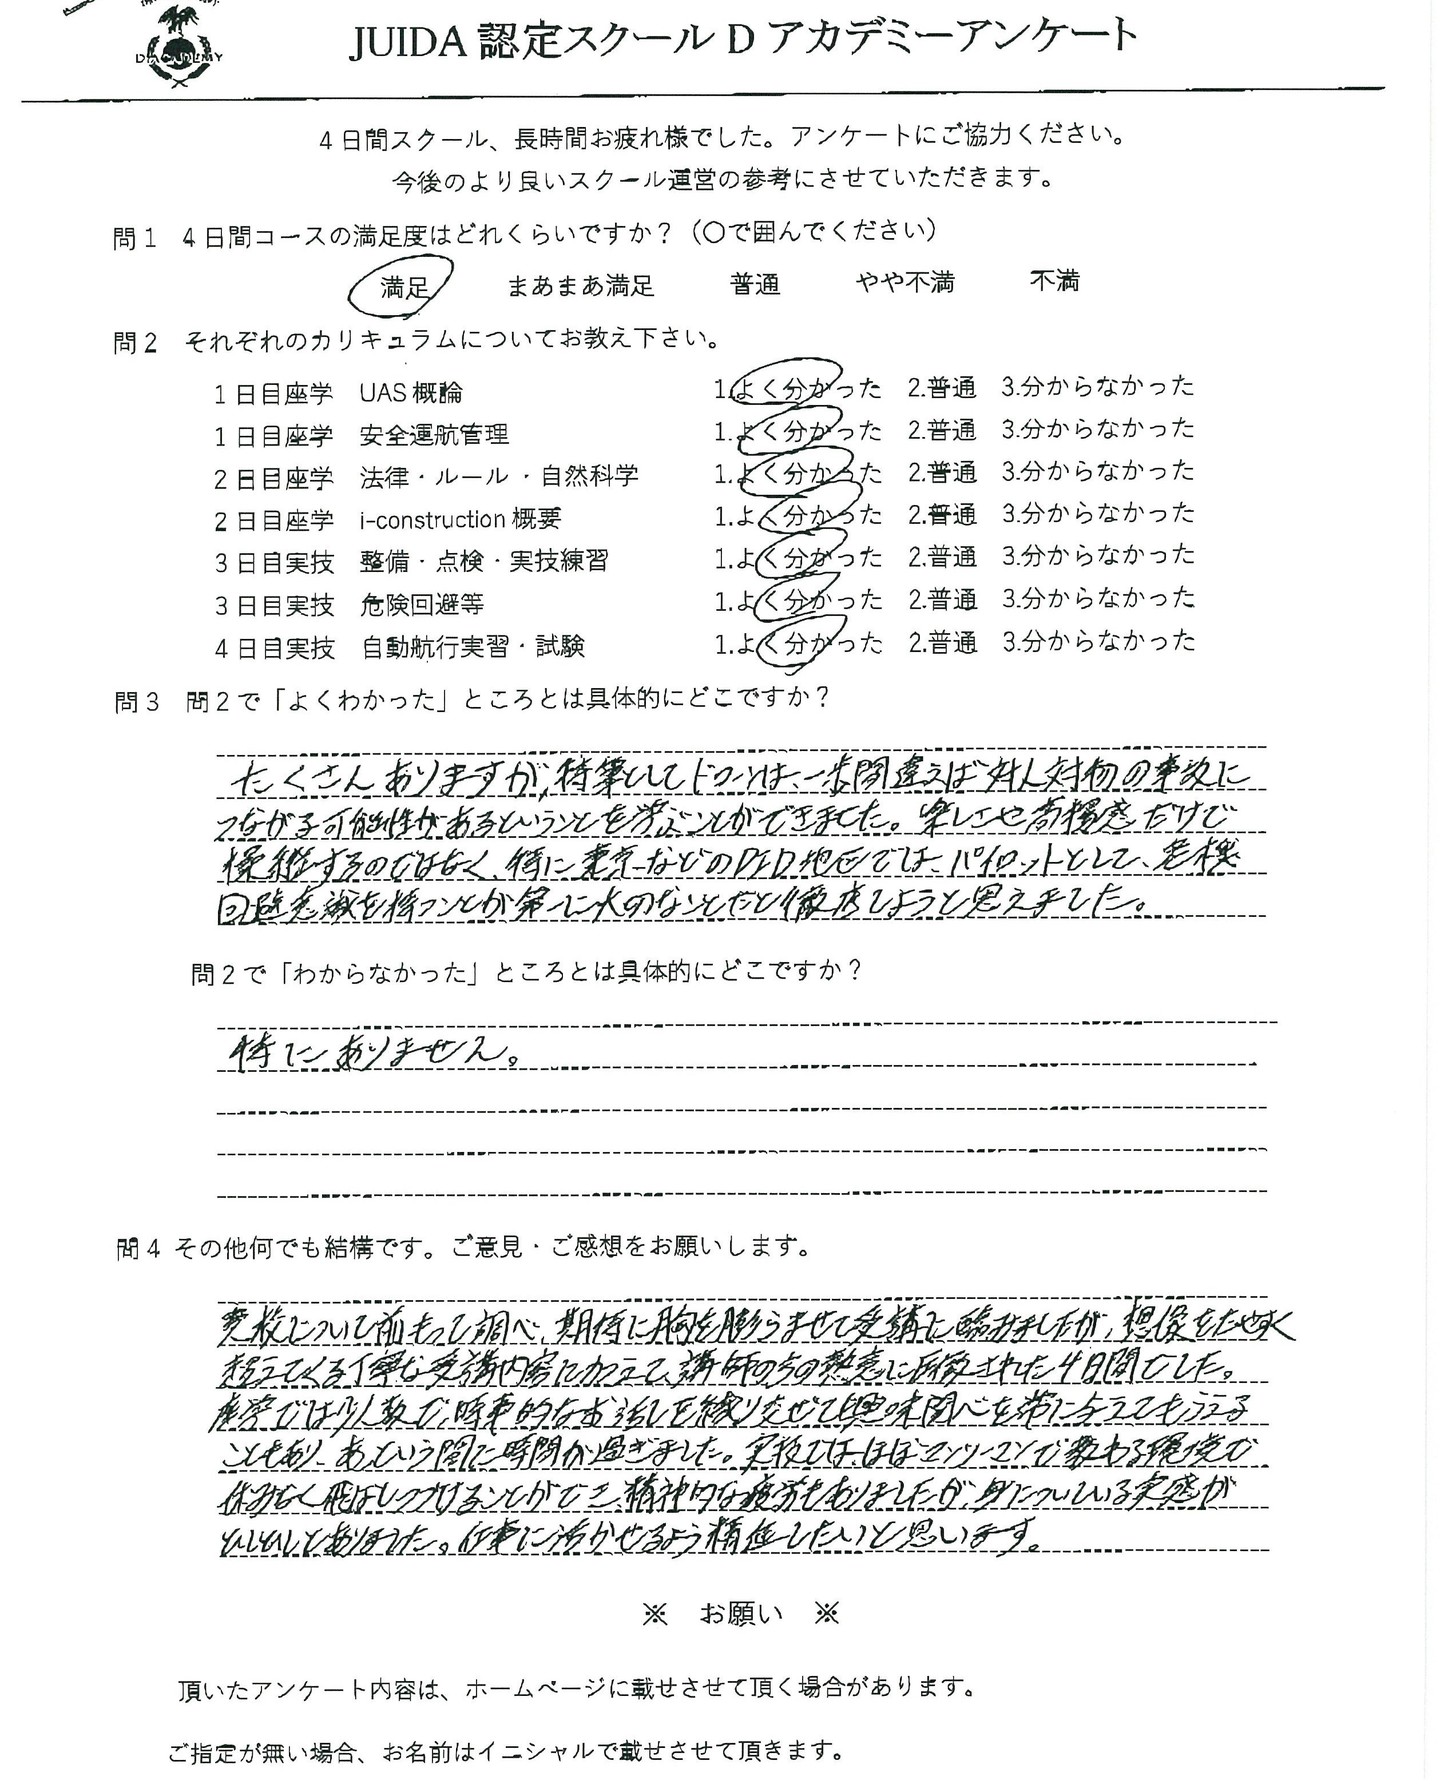 D ACADEMY
JUIDA 認定スクール D アカデミーアンケート
4日間スクール、長時間お疲れ様でした。アンケートにご協力ください。
今後のより良いスクール運営の参考にさせていただきます。
問1 4日間コースの満足度はどれくらいですか？（〇で囲んでください）
満足 まあまあ満足 普通 やや不満 不満
問2 それぞれのカリキュラムについてお教え下さい。
1日目座学 UAS概論 1.よく分かった 2.普通 3.分からなかった
1日目座学 安全運航管理 1.よく分かった 2.普通 3.分からなかった
2日目座学 法律・ルール・自然科学 1.よく分かった 2.普通 3.分からなかった
2日目座学 i-construction概要 1.よく分かった 2.普通 3.分からなかった
3日目実技 整備・点検・実技練習 1.よく分かった 2.普通 3.分からなかった
3日目実技 危険回避等 1.よく分かった 2.普通 3.分からなかった
4日目実技 自動航行実習・試験 1.よく分かった 2.普通 3.分からなかった
問3 問2で「よくわかった」ところとは具体的にどこですか？
たくさんありますが、特筆としてドローンは、一歩間違えば対人対物の事故に
つながる可能性があるということを学ぶことができました。楽しさや高揚感だけで
操縦するのではなく、特に東京などのDID地区では、パイロットとして、危機
回避意識を持つことが第一に大切なことだと徹底しようと思えました。
問2で「わからなかった」ところとは具体的にどこですか？
特にありません。
問4 その他何でも結構です。ご意見・ご感想をお願いします。
貴校について前もって調べ、期待に胸を膨らませて受講に臨みましたが、想像をたやすく
超えてくる丁寧な受講内容に加えて、講師の方の熱意に圧倒された4日間でした。
座学では少人数で、時事的なお話しを織り交ぜて興味関心を常に与えてもらえる
こともあり、あっという間に時間が過ぎました。実技では、ほぼマンツーマンで教わる環境で
休みなく飛ばしつづけることができ、精神的な疲労もありましたが、身についている実感が
ひしひしとありました。仕事に活かせるよう精進したいと思います。
※ お願い ※
頂いたアンケート内容は、ホームページに載せさせて頂く場合があります。
ご指定が無い場合、お名前はイニシャルで載せさせて頂きます。